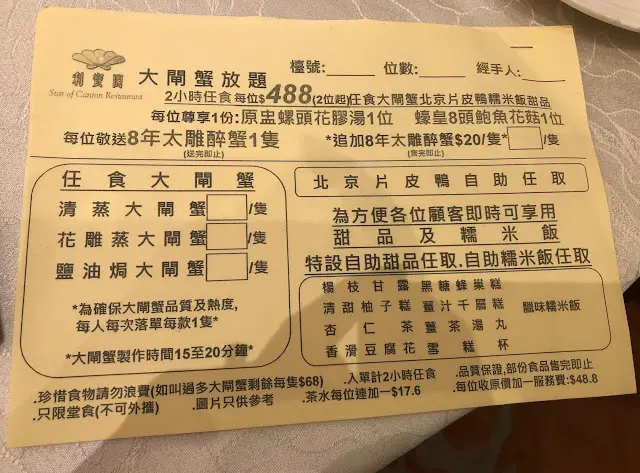 創豐園
Star of Canton Restaurant
大閘蟹放題
檯號:_____ 位數:_____ 經手人:_____
2小時任食每位$488(2位起)任食大閘蟹北京片皮鴨糯米飯甜品
每位尊享1份:原盅螺頭花膠湯1位 蠔皇8頭鮑魚花菇1位
每位敬送8年太雕醉蟹1隻 *追加8年太雕醉蟹$20/隻* /隻
(送完即止) (售完即止)
任食大閘蟹
清蒸大閘蟹 /隻
花雕蒸大閘蟹 /隻
鹽油焗大閘蟹 /隻
*為確保大閘蟹品質及熱度,
每人每次落單每款1隻*
*大閘蟹製作時間15至20分鐘*
北京片皮鴨自助任取
為方便各位顧客即時可享用
甜品及糯米飯
特設自助甜品任取.自助糯米飯任取
楊枝甘露 黑糖蜂巢糕
清甜柚子糕 薑汁千層糕 臘味糯米飯
杏仁茶 薑茶湯丸
香滑豆腐花 雪糕杯
.珍惜食物請勿浪費(如叫過多大閘蟹剩餘每隻$68) .入單計2小時任食 .品質保證,部份食品售完即止
.只限堂食(不可外攜) .圖片只供參考 .茶水每位連加一$17.6 .每位收原價加一服務費:$48.8